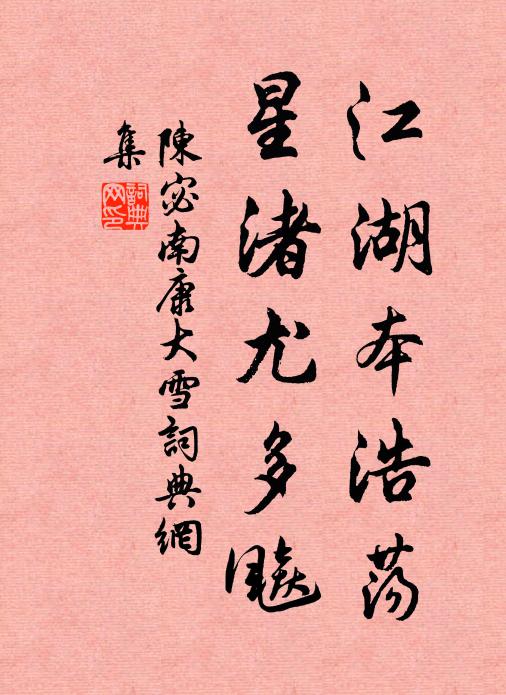 江湖本浩蕩
星渚尤多飈
陳宓南康大雪詞典網
集
詞典
网印